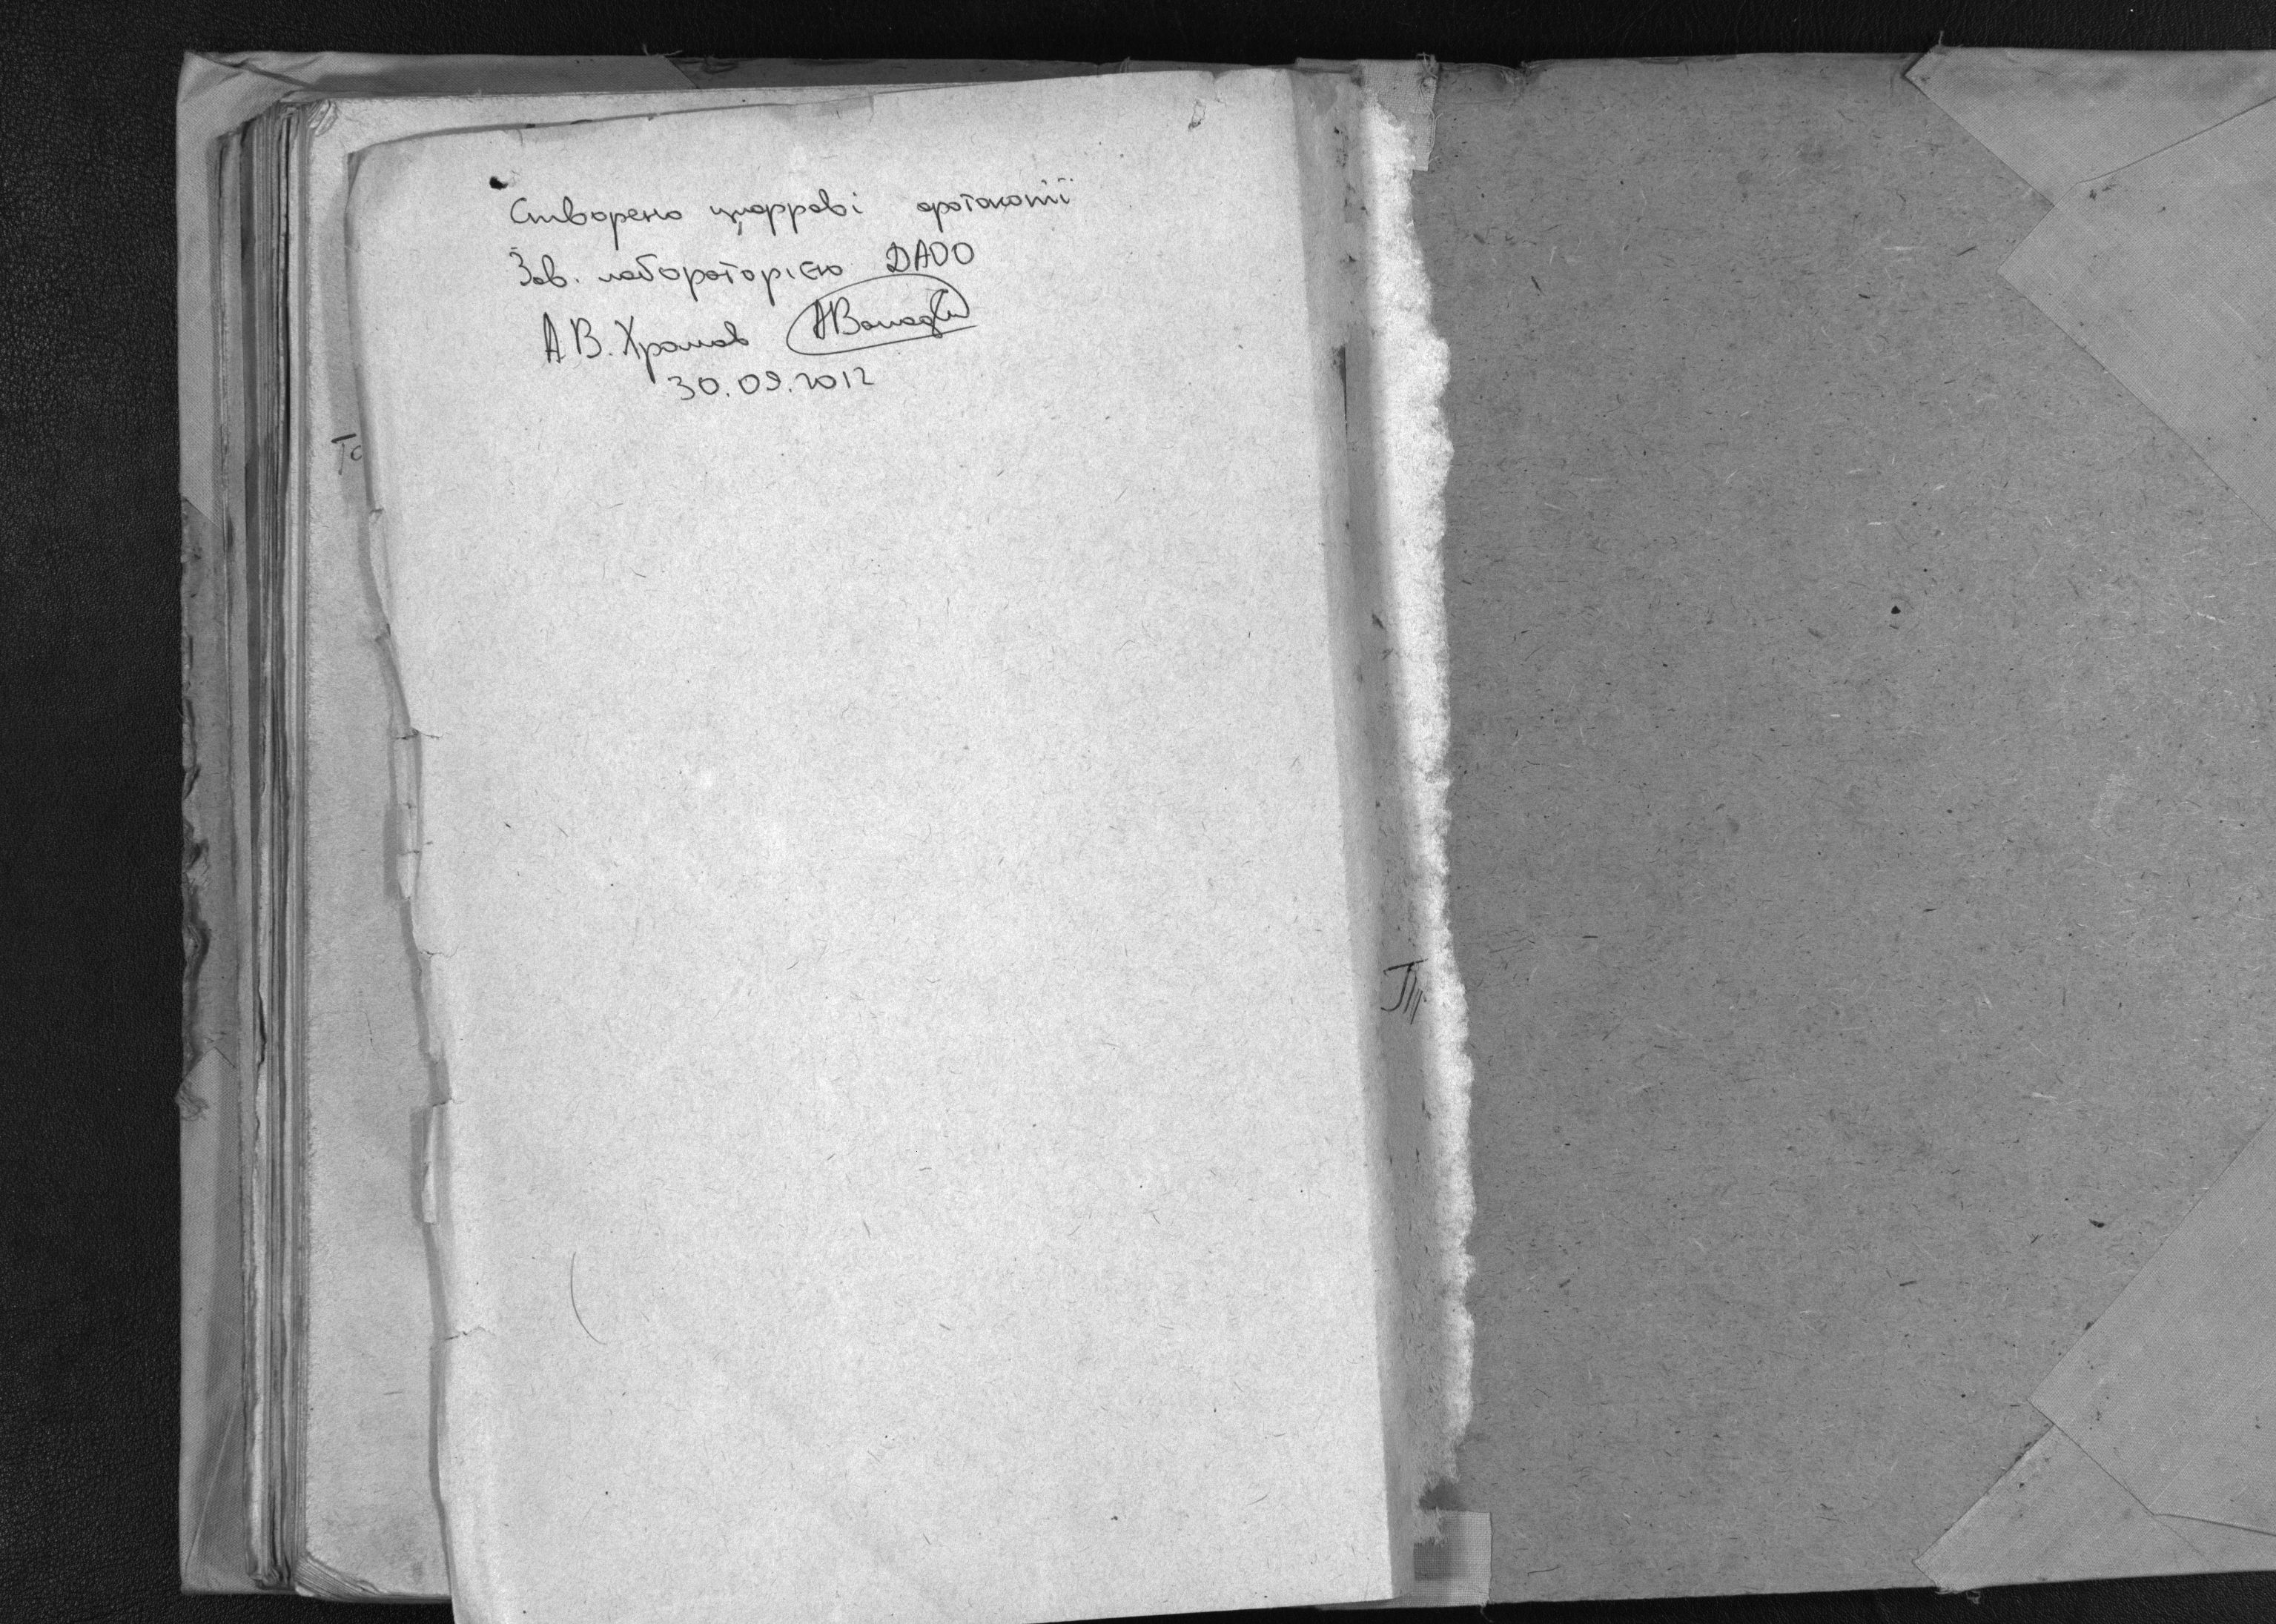 Створено цифрові фотокопії
Зав. лабораторією ДАОО
А В. Хромов
30.09.2012
То